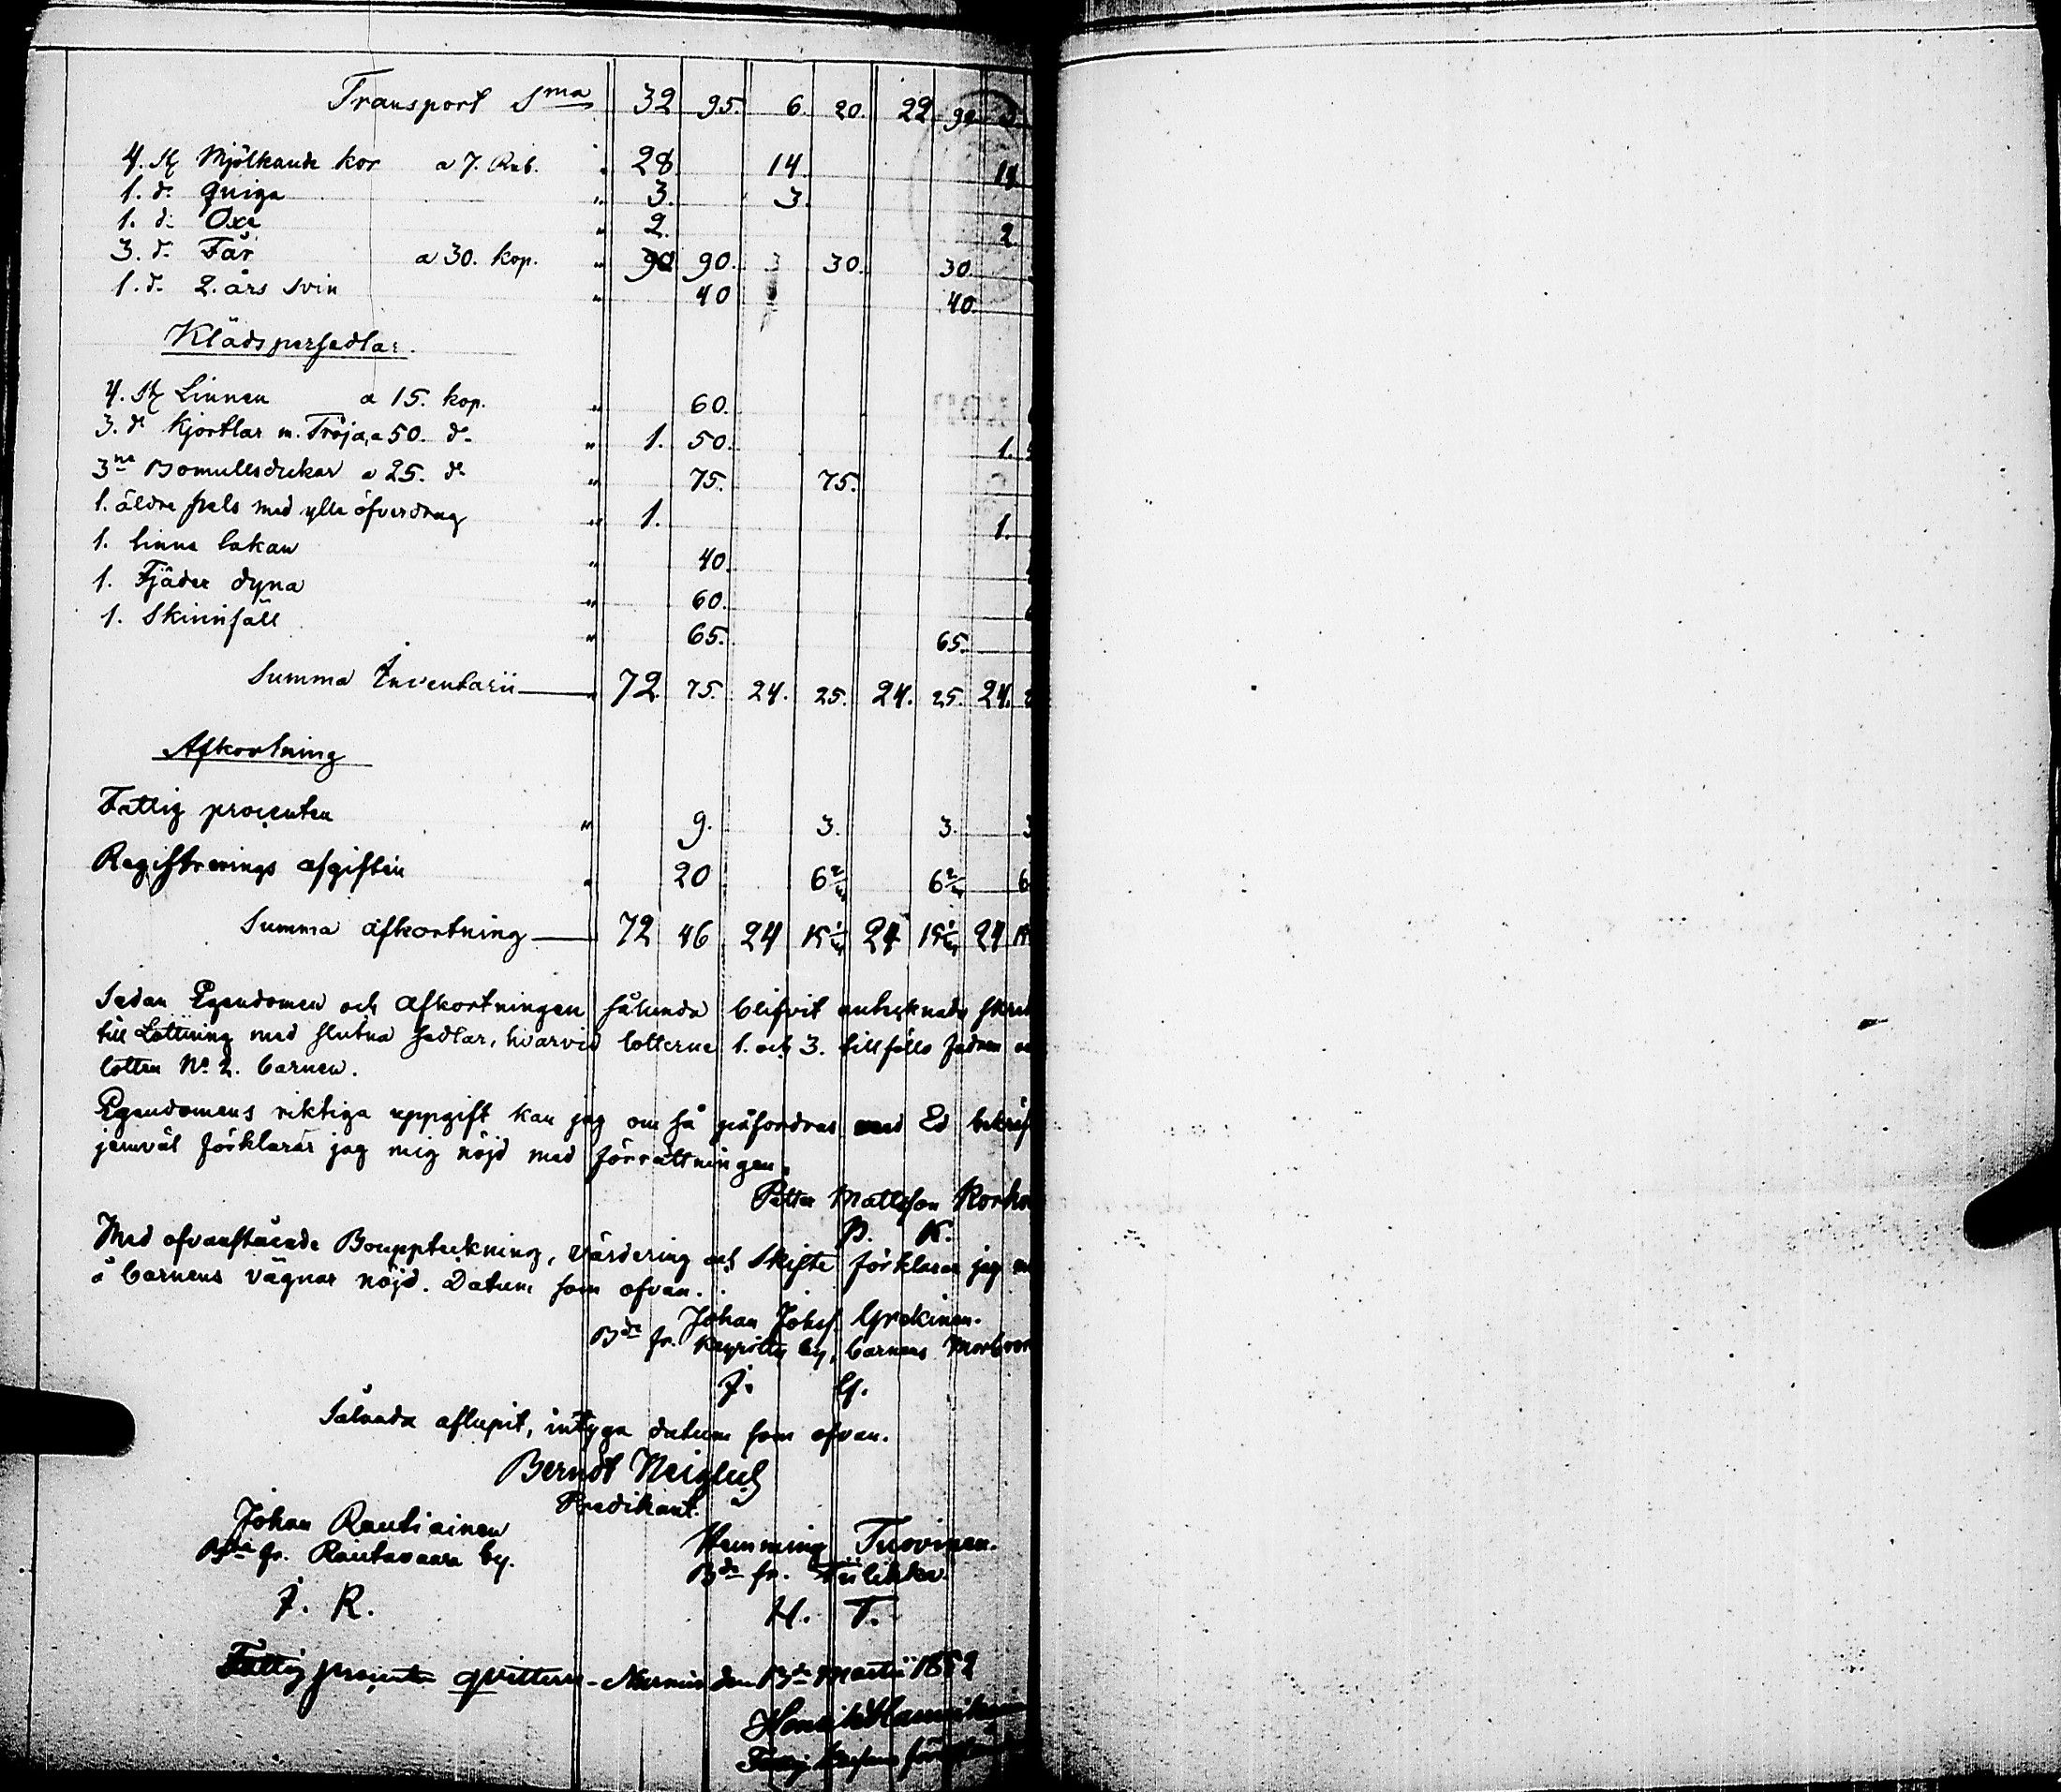 Transport Sma 32 95. 6. 20. 22 92
4. St Mjölkande kor a 7. Rub. " 28. 14. 14
1. do quiga " 3. 3.
1. do Oxe " 2. 2
3. do Får a 30. kop. " 90. 30. 30.
1. do 2. års svin " 40 40.
Klädspersedlar.
4. St Linnen a 15. kop. " 60.
3. do Kjortlar m. Tröja, a 50. do " 1. 50. 1.
3ne Bomullsdukar a 25. do " 75. 75.
1. äldre pels med ylle öfverdrag " 1. 1.
1. linne lakan " 40.
1. Fjäder dyna " 60.
1. Skinnfäll " 65. 65.
Summa Inventarii " 72. 75. 24. 25. 24. 25. 24.
Afkortning
Fattig procenten " 9. 3. 3. 3
Registrerings afgiften " 20 6 2/3 6 2/3 6
Summa afkortning 72 46 24 15 1/3 24 15 1/3 24
Sedan Egendomen och afkortningen sålunda blifvit antecknade
till Lottning med slutna sedlar, hvarvid lotterne 1. och 3. tillföllo fadren
lotten No 2. barnen.
Egendomens riktiga uppgift kan jag om så påfordras med Ed
jemväl förklarar jag mig nöjd med förrättningen.
Petter Mattsson
P. K.
Med ofvanstående Bouppteckning, värdering och Skifte förklarar jag
å barnens vägnar nöjd. Datum som ofvan.
Johan Johs.
Bde fr. by, barnens
J. G.
Sålunda aflupit, intyga datum som ofvan.
Berndt
Predikant.
Johan Rautiainen Hemming Tuovinen.
Bde fr. Rautavaara by. Bde fr. Tiilikka.
J. R. H. T.
Fattig procente qvitteras Nurmis den Martii 1852
Henrik